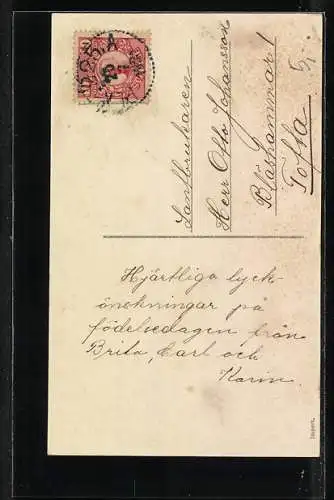 Lantbrukaren
Herr Otto Johansson
Blåshammar!
Tofta
Hjärtliga lyck-
önskningar på
födelsedagen från
Brita, Carl och
Karin